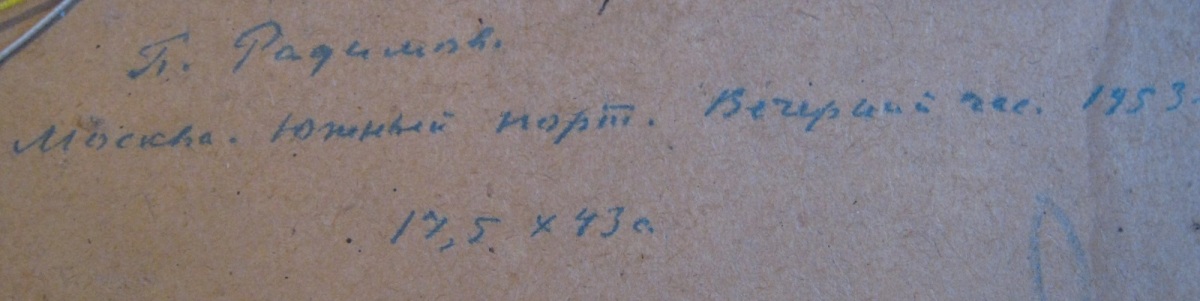 П. Радимов.
Москва. Южный порт. Вечерний час. 1953.
17,5 x 43 с